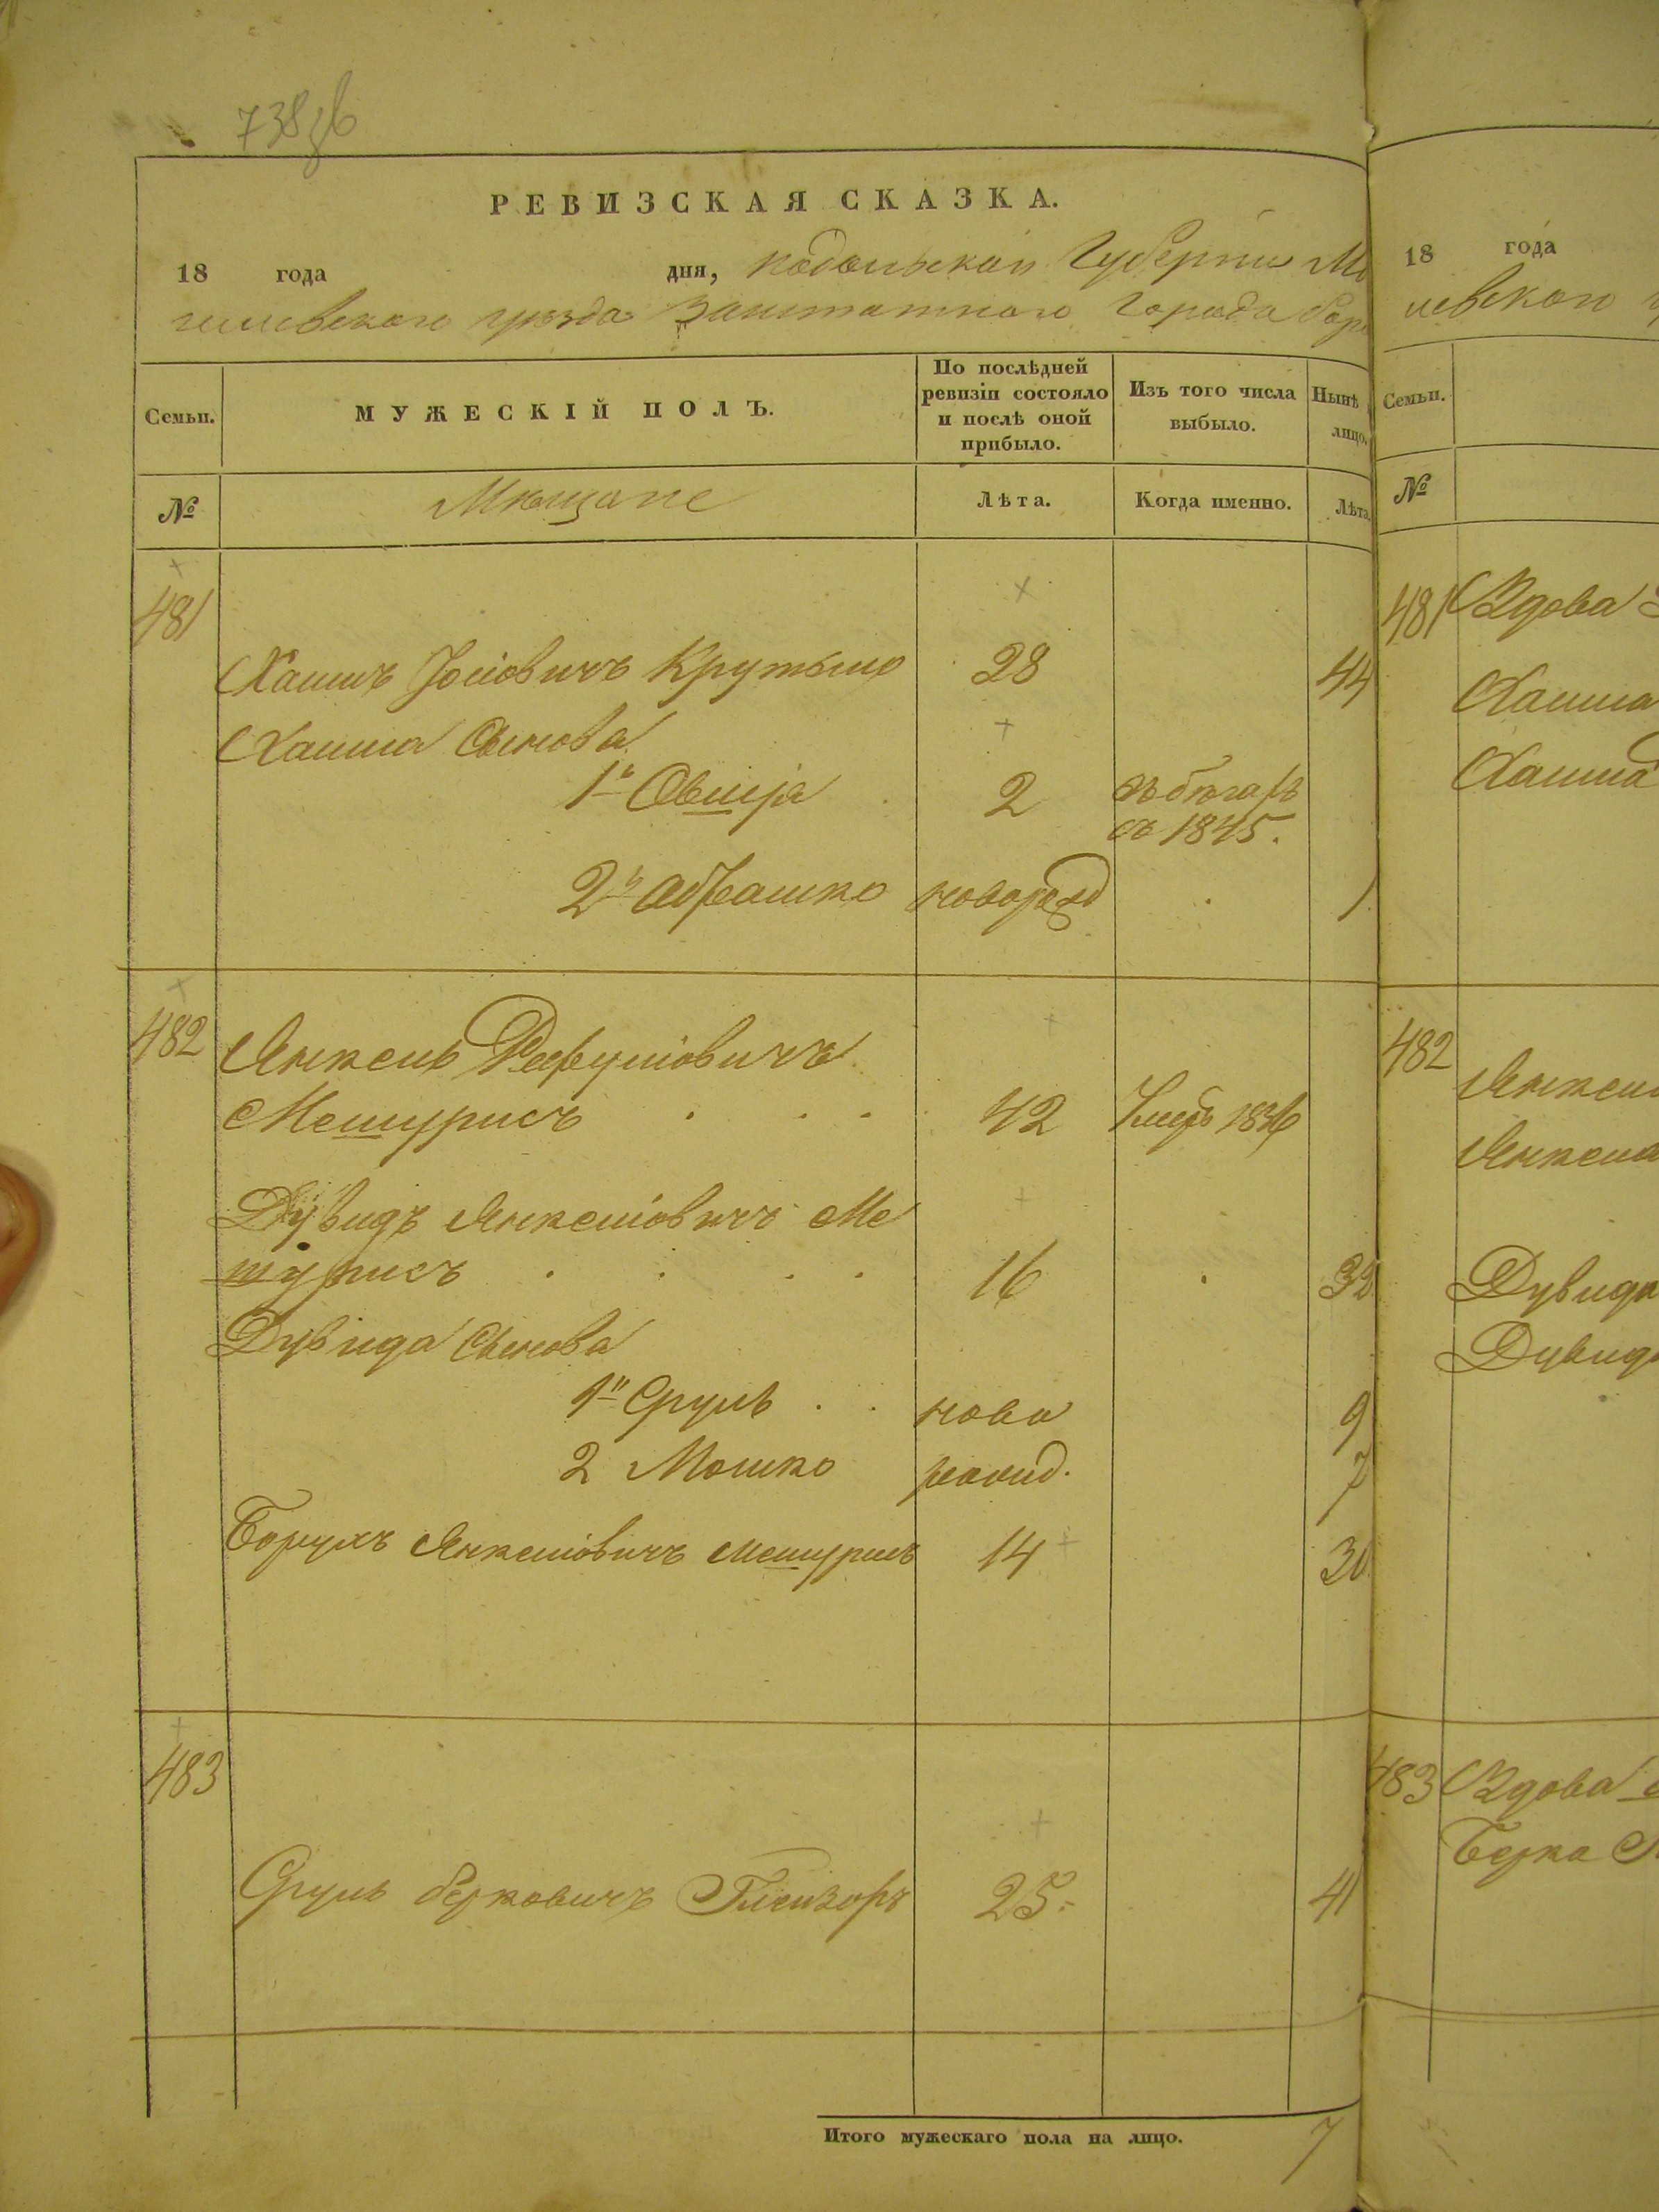 738 зв
РЕВИЗСКАЯ СКАЗКА.
18 года дня, Подольской Губернии Мо
гилевского уезда Заштатного Города Бар
Семьи.
МУЖЕСКІЙ ПОЛЪ.
По послѣдней ревизіи состояло и послѣ оной прибыло.
Изъ того числа выбыло.
Нынѣ лицо.
№
Мѣщане
Лѣта.
Когда именно.
Лѣта.
481
Хаимъ Іосіовичъ 28 44
Хаима Сынова
1й Овшія 2 въ бѣгахъ
съ 1845.
2й Абрашко новорожд 1
482 Янкель
Мешурисъ 42 Умеръ 1836
Дувидъ Янкеліовичъ Ме
шурисъ 16 32
Дувида Сынова
1й Сруль ново 9
2 Мошко рожд. 7
Борухъ Янкеліовичъ Мешурисъ 14 30
483
Сруль Берковичъ Глейзоръ 25 41
Итого мужескаго пола на лицо. 7
18 года
левского
Семьи.
№
481 Вдова
Хаима
Хаима
482
Янкел
Янкела
Дувида
Дувид
483 Вдова
Берка